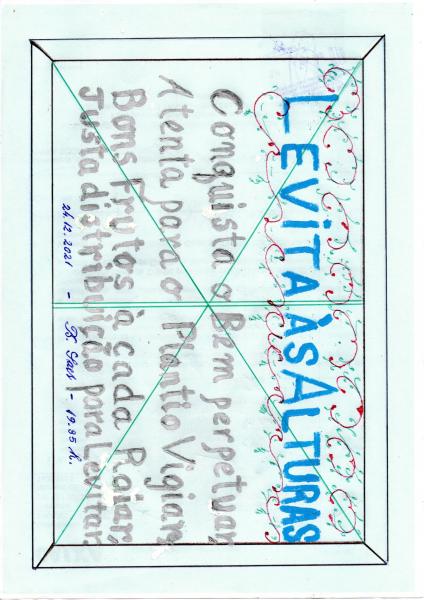 LEVITA ÀS ALTURAS
Conquista o Bem perpetuar,
Atenta para o Plantio Vigiar,
Bons Frutos à cada Raiar,
Justa distribuição para Levitar
24.12.2021 - - 19.35 h.